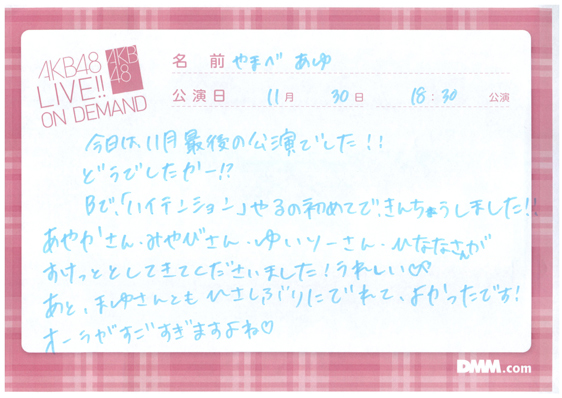 AKB48
LIVE!!
ON DEMAND
AKB
48
名 前 やまべ あゆ
公演日 11月 30日 18:30 公演
今日は、11月最後の公演でした!!
どうでしたかー!?
Bで、「ハイテンション」やるの初めてで、きんちょうしました!!
あやかさん・みやびさん・ゆいりーさん・ひななさんが
すけっととしてきてくださいました!うれしい♡
あと、まゆさんともひさしぶりにでれて、よかったです!
オーラがすごすぎますよね♡
DMM.com